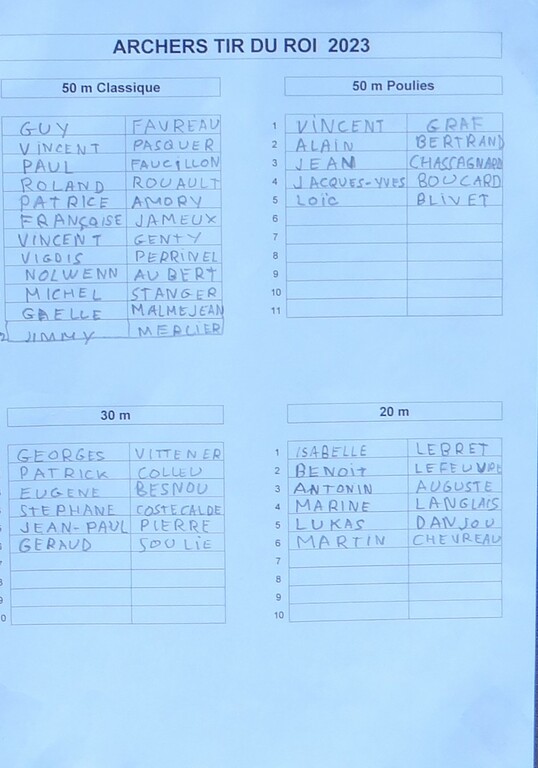 ARCHERS TIR DU ROI 2023
50 m Classique
GUY FAVREAU
VINCENT PASQUER
PAUL FAUCILLON
ROLAND ROUAULT
PATRICE AMORY
FRANÇOISE JAMEUX
VINCENT GENTY
VIGDIS PERRINEL
NOLWENN AUBERT
MICHEL STANGER
GAELLE MALMEJEAN
JIMMY MERCIER
50 m Poulies
1 VINCENT GRAF
2 ALAIN BERTRAND
3 JEAN CHASSAGNARD
4 JACQUES-YVES BOUCARD
5 LOÏC BLIVET
6
7
8
9
10
11
30 m
GEORGES VITTENER
PATRICK COLLEU
EUGENE BESNOU
STEPHANE COSTECALDE
JEAN-PAUL PIERRE
GERAUD SOULIE
20 m
1 ISABELLE LEBRET
2 BENOIT LEFEUVRE
3 ANTONIN AUGUSTE
4 MARINE LANGLAIS
5 LUKAS DANJOU
6 MARTIN CHEVREAU
7
8
9
10